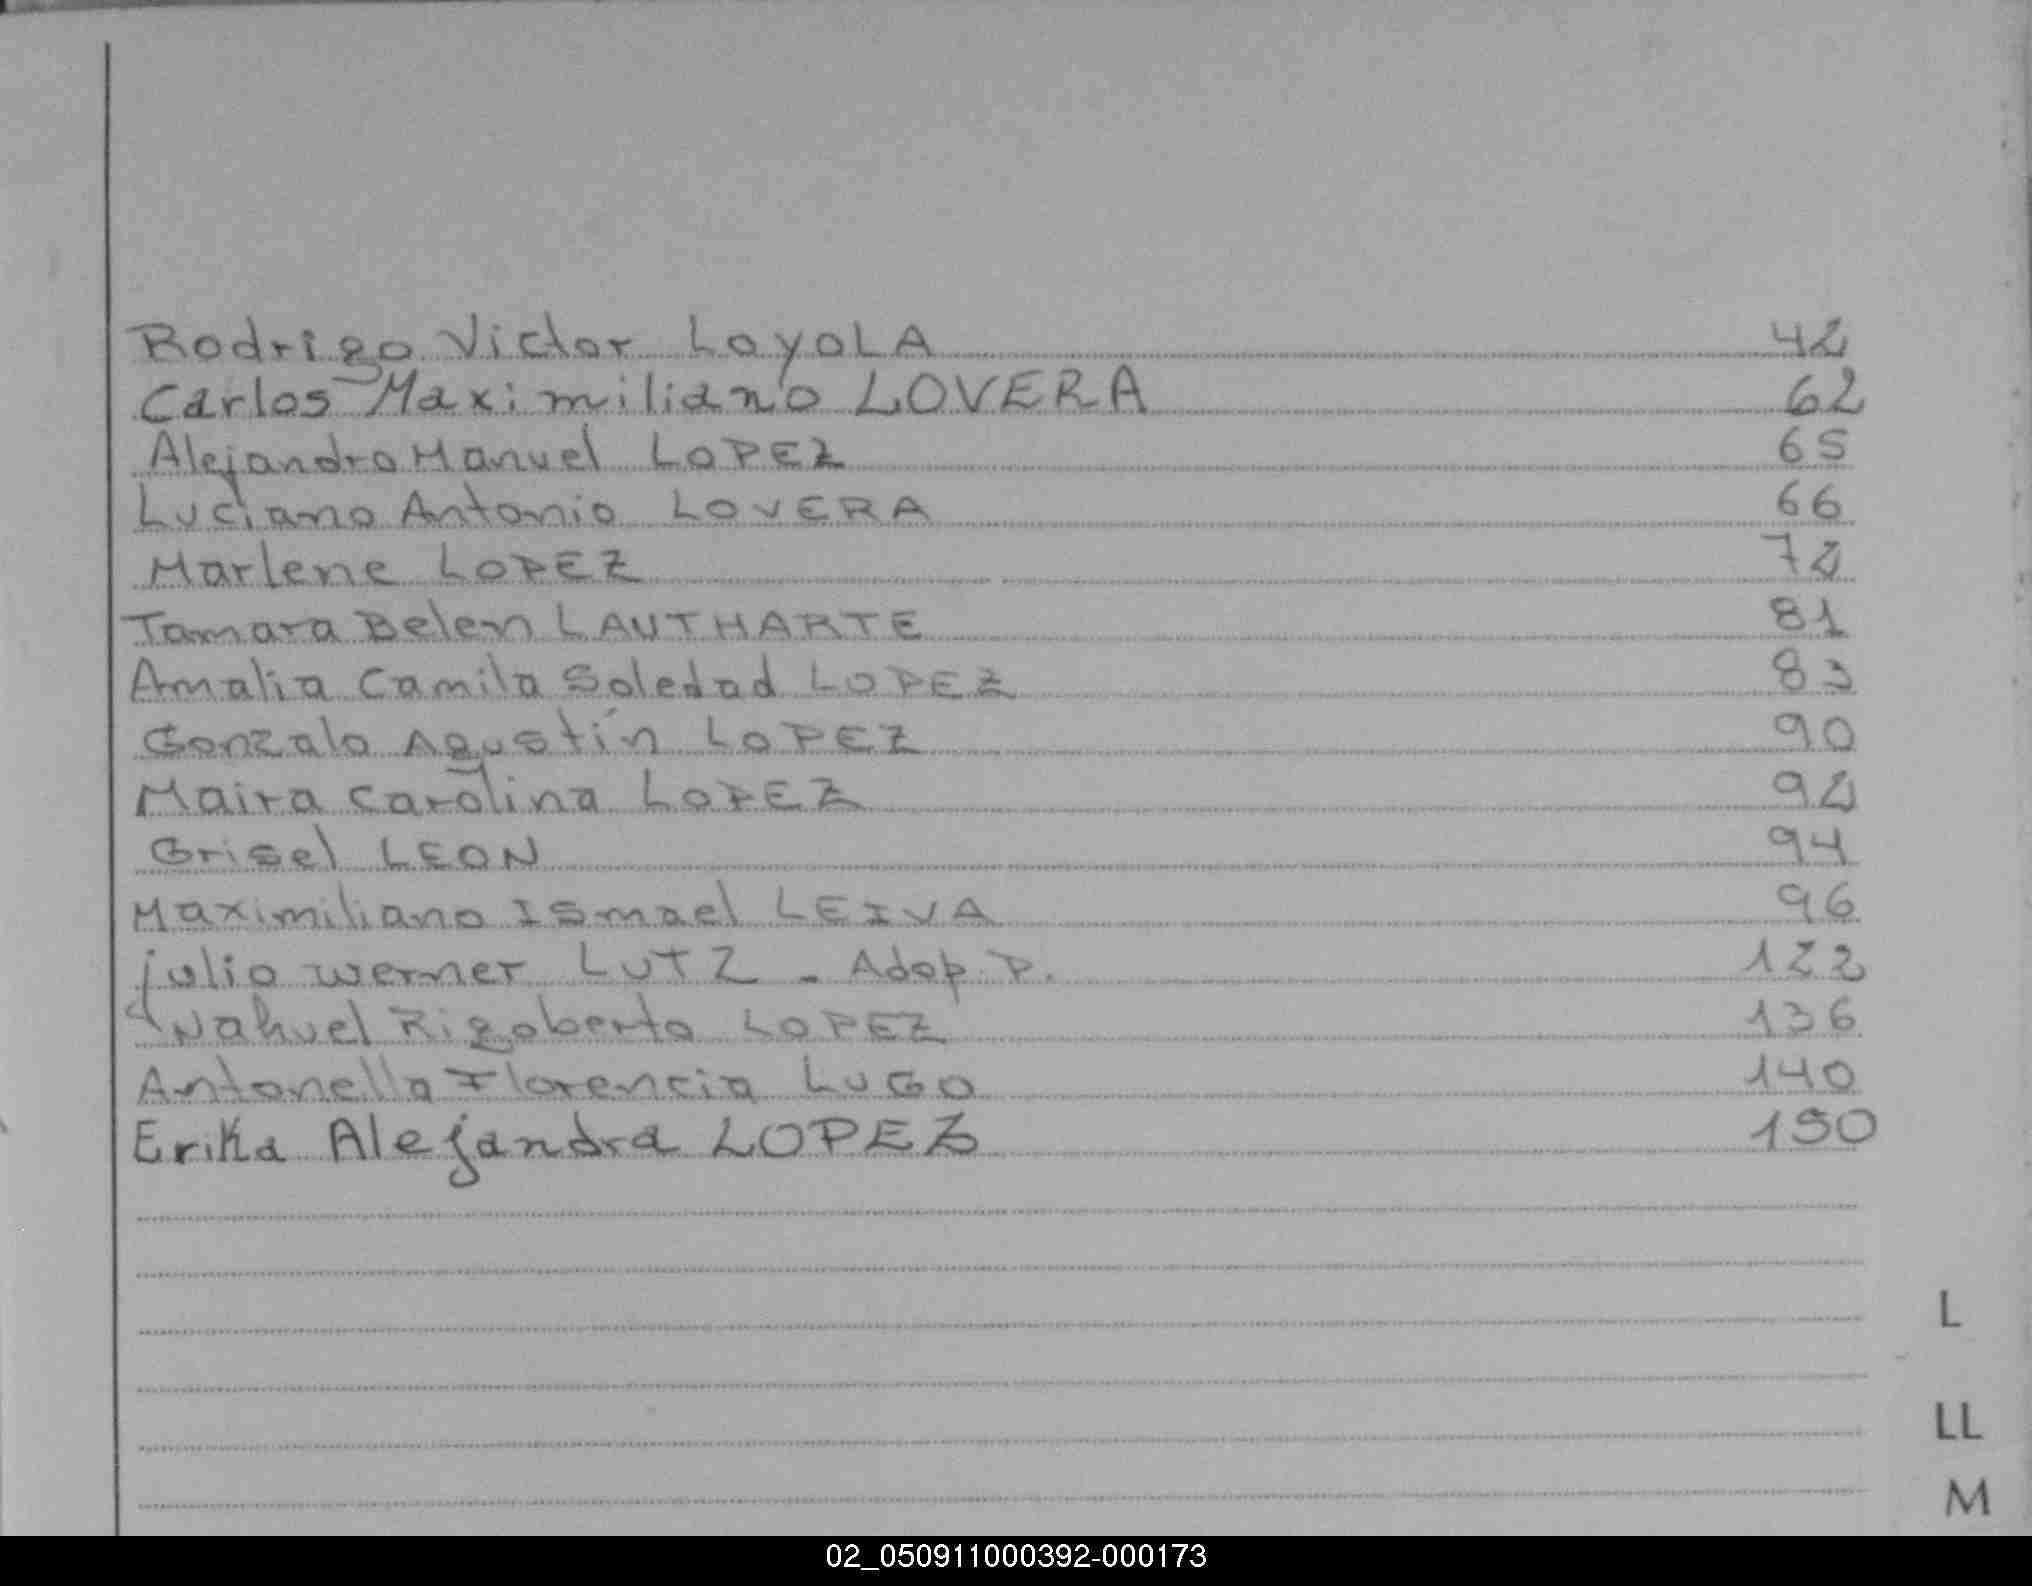 Rodrigo Victor LOYOLA 42
Carlos Maximiliano LOVERA 62
Alejandro Manuel LOPEZ 65
Luciano Antonio LOVERA 66
Marlene LOPEZ 72
Tamara Belen LAUTHARTE 81
Amalia Camila Soledad LOPEZ 83
Gonzalo Agustín LOPEZ 90
Maira Carolina LOPEZ 92
Grisel LEON 94
Maximiliano Ismael LEIVA 96
julio werner LUTZ - Adop. P. 122
Nahuel Rigoberto LOPEZ 136
Antonella Florencia LUGO 140
Erika Alejandra LOPEZ 150
L
LL
M
02_050911000392-000173